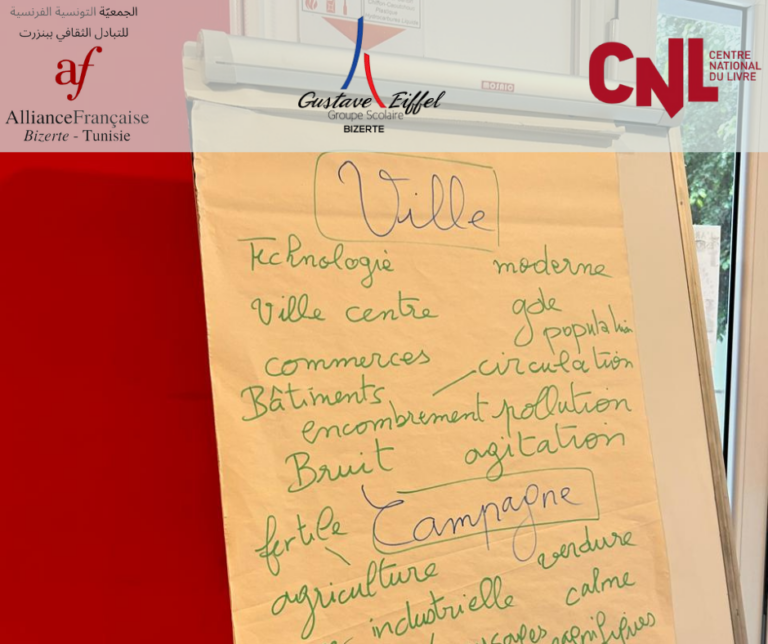 الجمعيّة التونسية الفرنسية
للتبادل الثقافي ببنزرت
af
AllianceFrançaise
Bizerte - Tunisie
Gustave Eiffel
Groupe Scolaire
BIZERTE
CNL
CENTRE
NATIONAL
DU LIVRE
Ville
Technologie moderne
Ville centre gde
population
commerces circulation
Bâtiments
encombrement pollution
Bruit agitation
Campagne
fertile
agriculture verdure
industrielle calme
magnifiques